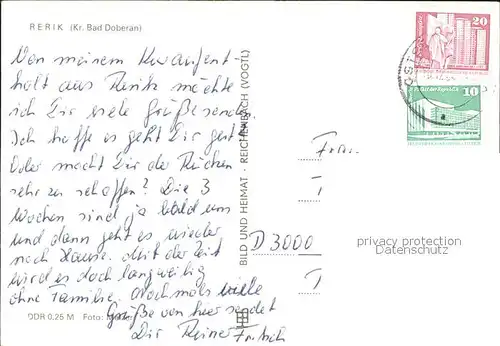 RERIK (Kr. Bad Doberan)
Von meinem Kuraufent-
halt aus Rerik möchte
ich Dir viele Grüße senden.
Ich hoffe es geht Dir gut
Oder macht Dir der Rücken
sehr zu schaffen? Die 3
Wochen sind ja bald um
und dann geht es wieder
nach Hause. Mit der Zeit
wird es doch langweilig
ohne Familie. Nochmals viele
Grüße von hier sendet
Dir Reiner
DDR 0,25 M Foto:
BILD UND HEIMAT · REICHENBACH (VOGTL)
20
10
Frau
D 3000
privacy protection
Datenschutz